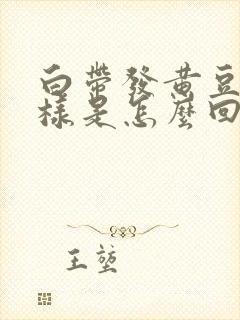 白帶發黃豆
樣是怎麼回
王堃